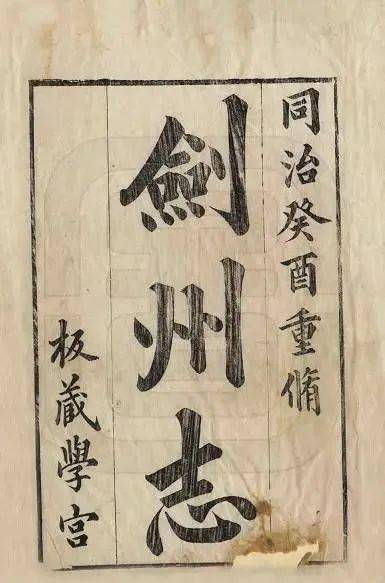 同治癸酉重脩
劍州志
板藏學宫